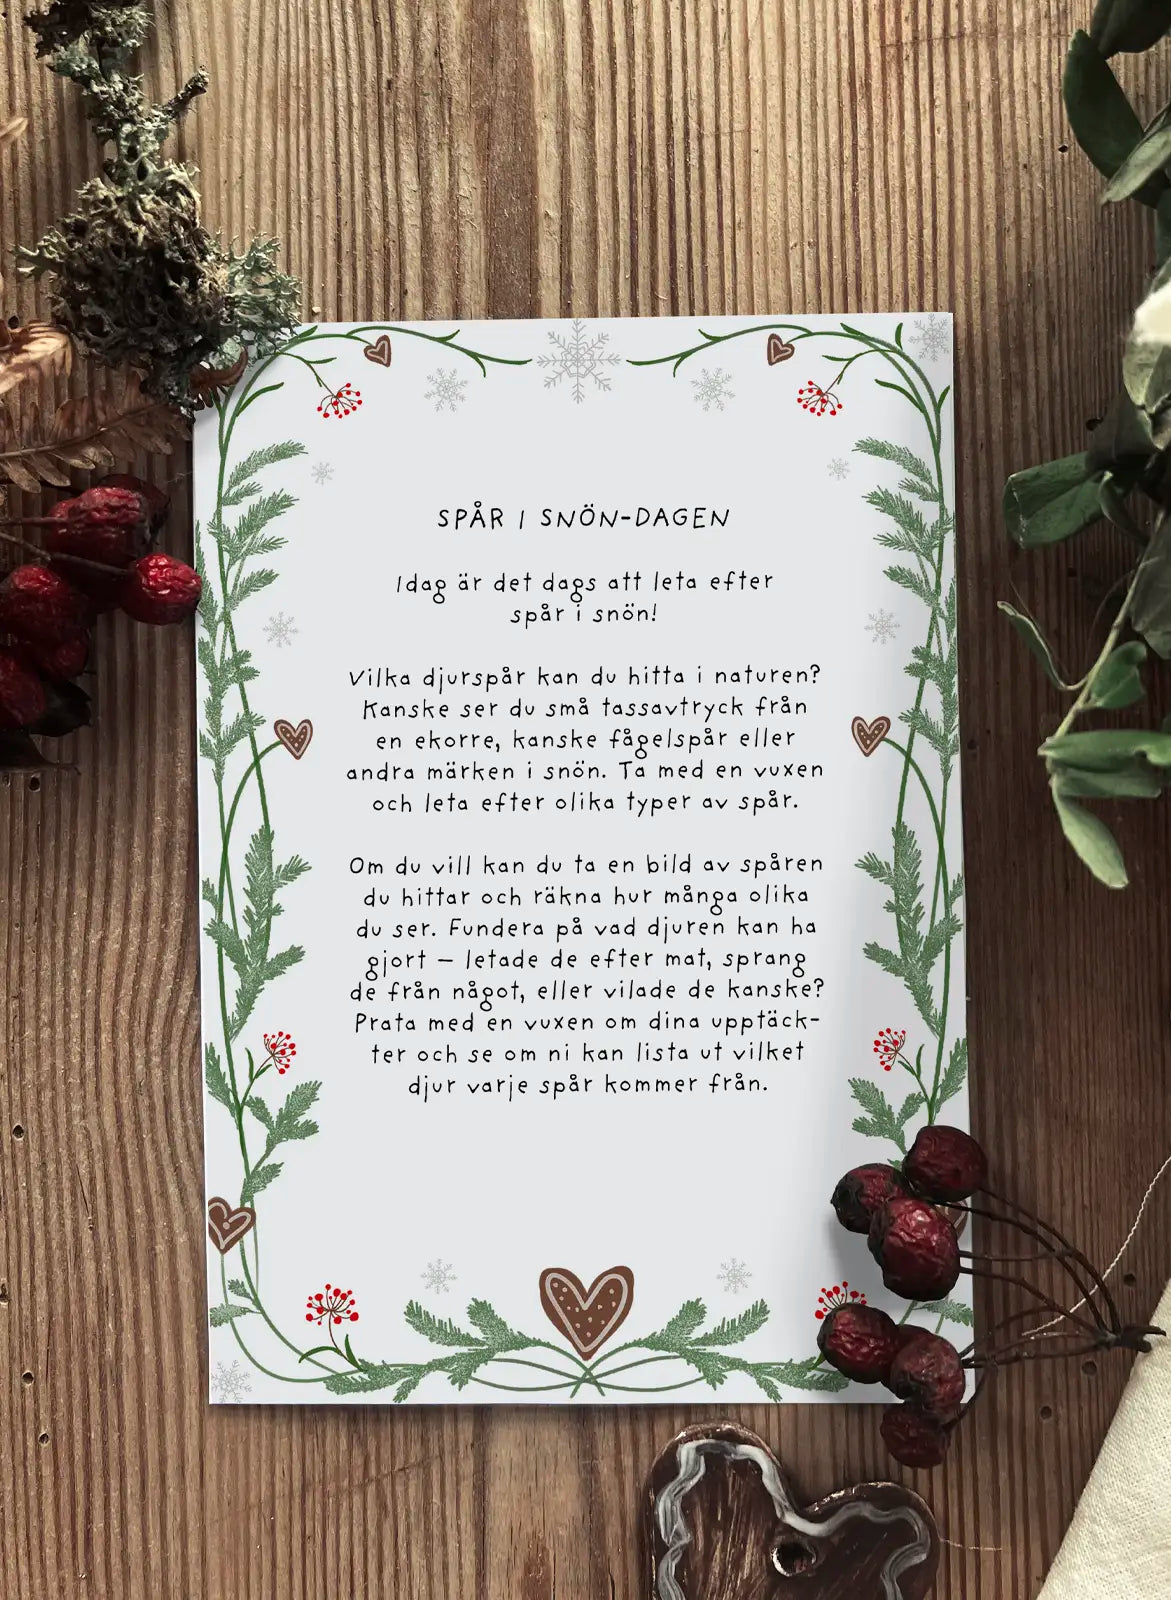 SPÅR I SNÖN-DAGEN
Idag är det dags att leta efter
spår i snön!
Vilka djurspår kan du hitta i naturen?
Kanske ser du små tassavtryck från
en ekorre, kanske fågelspår eller
andra märken i snön. Ta med en vuxen
och leta efter olika typer av spår.
Om du vill kan du ta en bild av spåren
du hittar och räkna hur många olika
du ser. Fundera på vad djuren kan ha
gjort – letade de efter mat, sprang
de från något, eller vilade de kanske?
Prata med en vuxen om dina upptäck-
ter och se om ni kan lista ut vilket
djur varje spår kommer från.